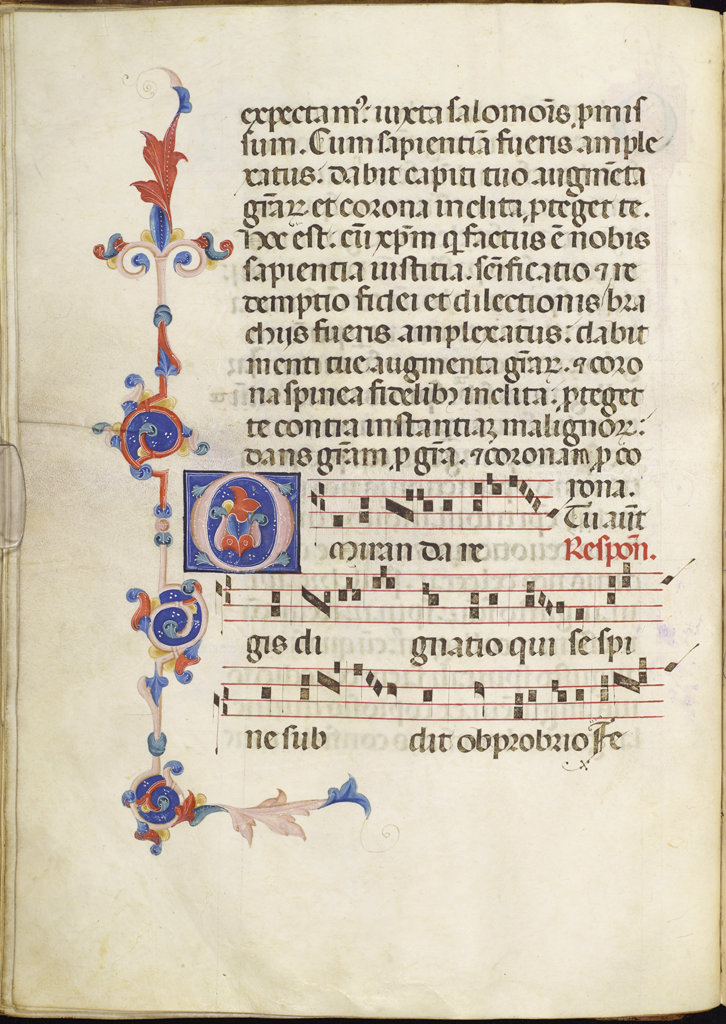 expectam⁹. iuxta salomōis ꝓmis
sum. Cum sapientiā fueris ample
xatus. dabit capiti tuo augmēta
gr̄aꝝ et corona inclita ꝓteget te.
hoc est. cū xp̄m q̄ factus ē nobis
sapientia iustitia. scīficatio ⁊ re
demptio fidei et dilectionis bra
chijs fueris amplexatus: dabit
menti tue augmenta gr̄aꝝ. ⁊ coro
na spinea fidelibꝫ inclita. ꝓteget
te contra instantiaꝫ malignoꝝ:
dans gr̄am ꝓ gr̄a. ⁊ coronam ꝓ co
rona.
Tu aūt
Respon̄.
O Miranda re
gis dignatio qui se spi
ne subdit obprobrio Fe